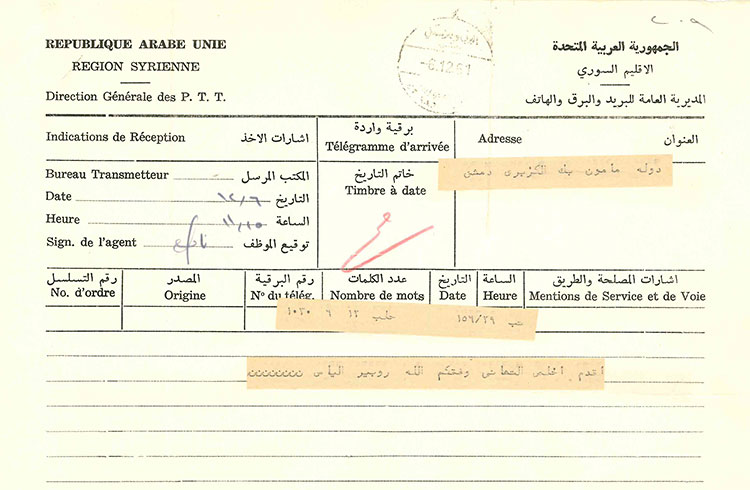 ٢٠٩
REPUBLIQUE ARABE UNIE
الجمهورية العربية المتحدة
REGION SYRIENNE
الاقليم السوري
Direction Générale des P. T. T.
المديرية العامة للبريد والبرق والهاتف
-6.12.61
Indications de Réception
اشارات الاخذ
برقية واردة
Télégramme d'arrivée
Adresse
العنوان
Bureau Transmetteur
المكتب المرسل
خاتم التاريخ
Timbre à date
دولة مامون بك الكزبري دمشق
Date
١٢/٦
التاريخ
Heure
١١,١٥
الساعة
Sign. de l'agent
توقيع الموظف
رقم التسلسل
No. d'ordre
المصدر
Origine
رقم البرقية
No du télég.
عدد الكلمات
Nombre de mots
التاريخ
Date
الساعة
Heure
اشارات المصلحة والطريق
Mentions de Service et de Voie
١٥٦/٢٩ حلب ١٢ ٦ ١٠٣٠
اقدم اخلص التهاني وفقكم الله روبير الياس